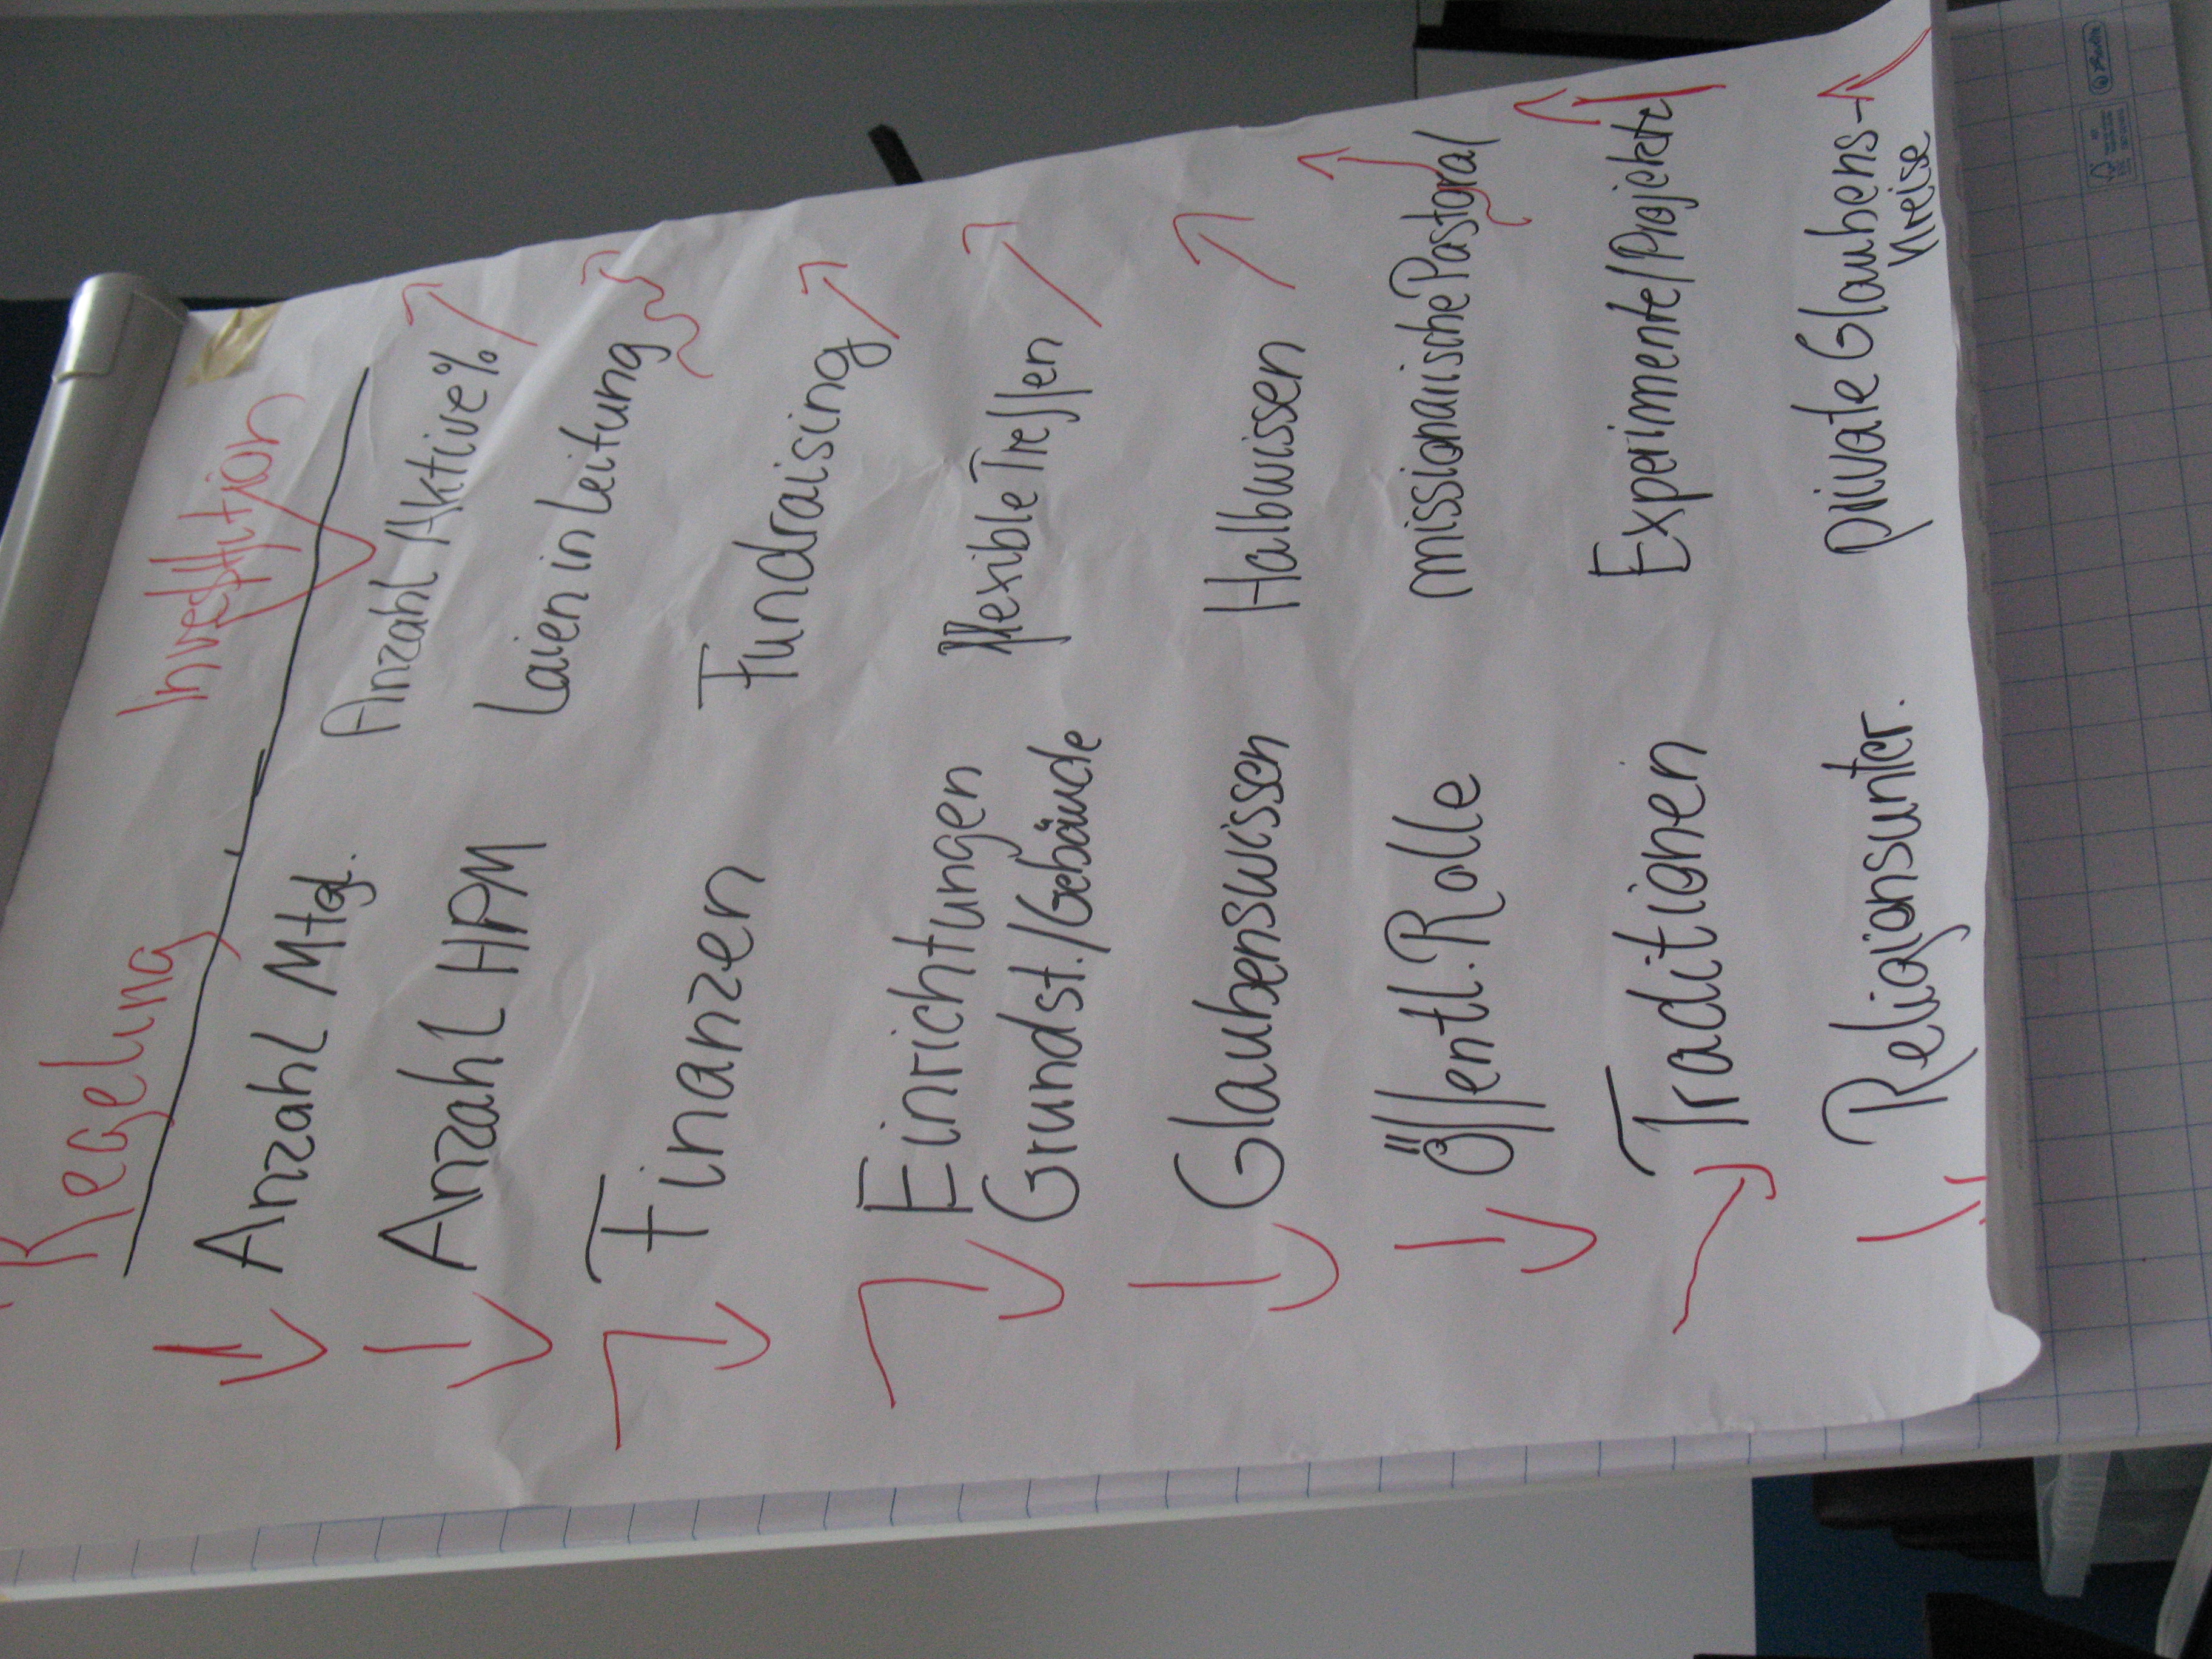 Regelung Investition
Anzahl Mtgl. Anzahl Aktive%
Anzahl HPM Laien in Leitung
Finanzen Fundraising
Einrichtungen flexible Treffen
Grundst./Gebäude
Glaubenswissen Halbwissen
Öffentl. Rolle missionarische Pastoral
Traditionen Experimente/Projekte
Religionsunter. private Glaubens-
kreise